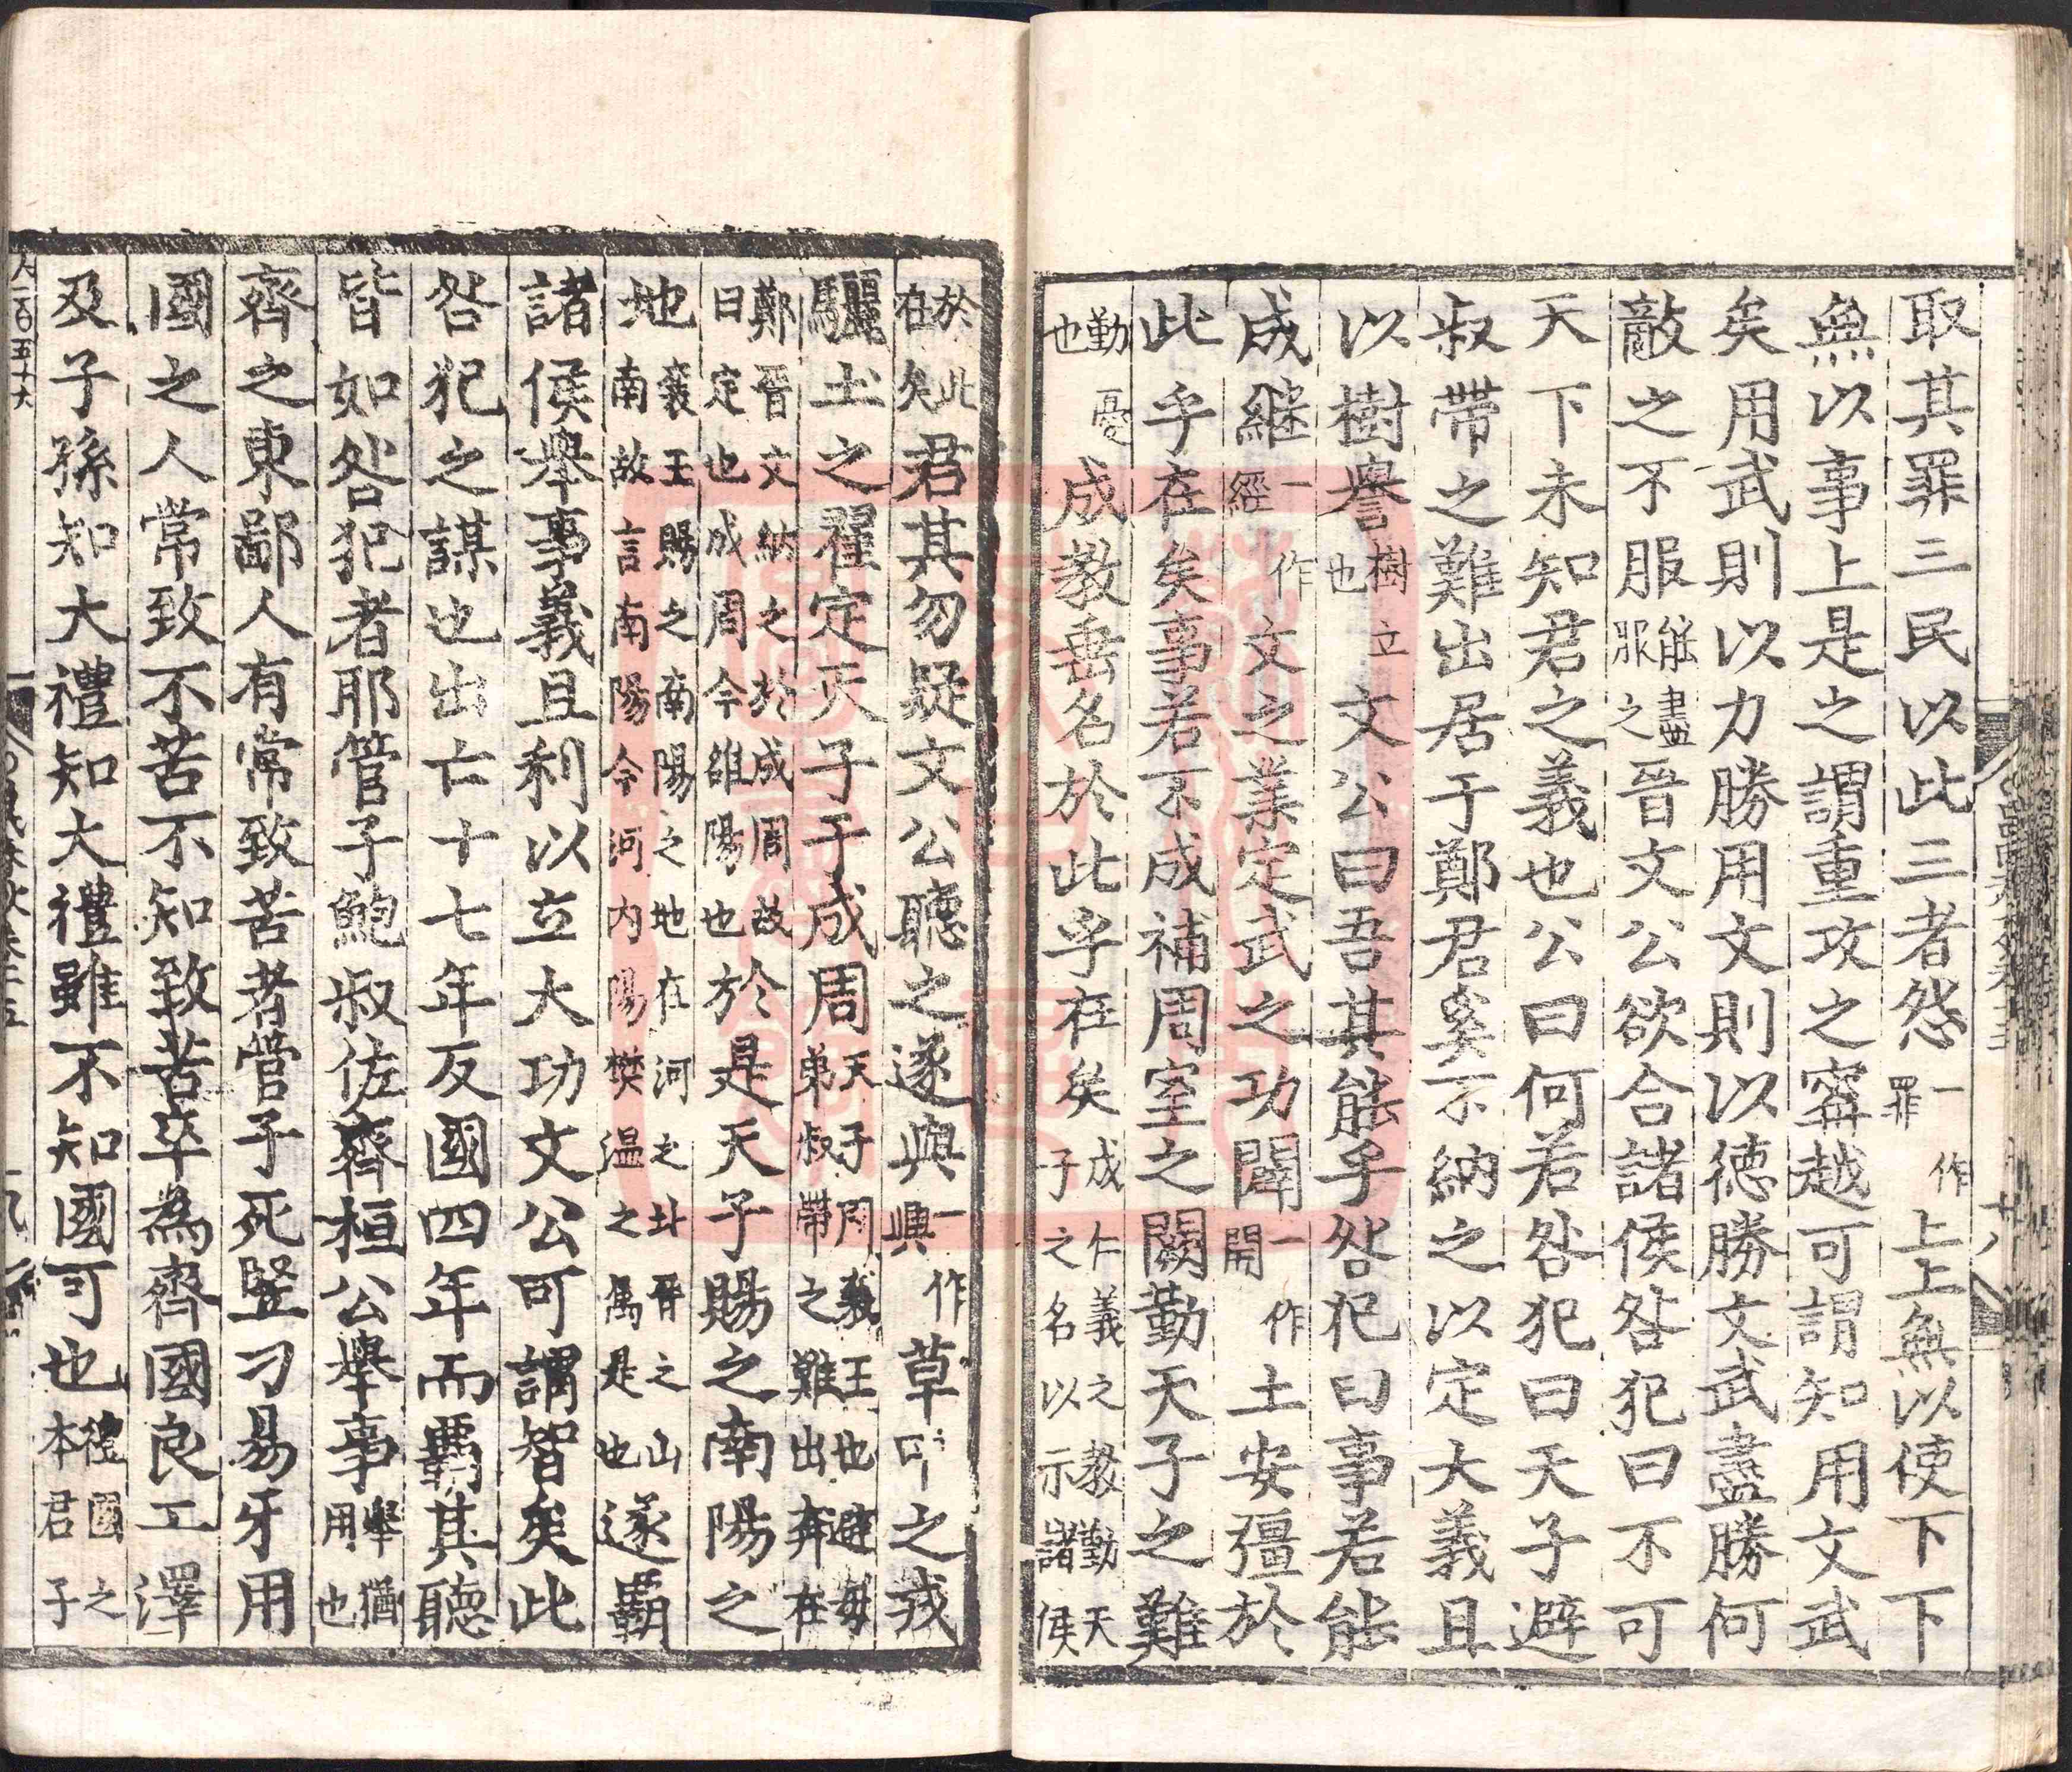 取其罪三民以此三者怨一作罪上上無以使下下
無以事上是之謂重攻之甯越可謂知用文武
矣用武則以力勝用文則以德勝文武盡勝何
敵之不服能盡服之晉文公欲合諸侯咎犯曰不可
天下未知君之義也公曰何若咎犯曰天子避
叔帶之難出居于鄭君奚不納之以定大義且
以樹譽樹立也文公曰吾其能乎咎犯曰事若能
成繼一作經文之業定武之功闢一作開土安彊於
此乎在矣事若不成補周室之闕勤天子之難
勤憂也成教垂名於此乎在矣成仁義之教勤天子之名以示諸侯
於此在矣君其勿疑文公聽之遂與一作興草之戎
驪土之翟定天子于成周天子周襄王也避母弟叔帶之難出奔在
鄭晉文納之於成周故曰定也成周今雒陽也於是天子賜之南陽之
地襄王賜之南陽之地在河之北晉之山南故言南陽今河內陽樊溫之屬是也遂霸
諸侯舉事義且利以立大功文公可謂智矣此
咎犯之謀也出亡十七年反國四年而霸其聽
皆如咎犯者耶管子鮑叔佐齊桓公舉事舉猶用也
齊之東鄙人有常致苦者管子死豎刁易牙用
國之人常致不苦不知致苦卒為齊國良工澤
及子孫知大禮知大禮雖不知國可也國之本君子
人一百五十六